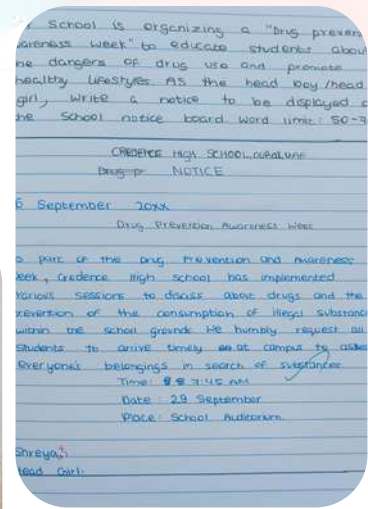 School is organizing a "Drug preven
wareness week" to educate students abou
he dangers of drug use and promote
healthy lifestyles. As the head boy/head
girl, write a notice to be displayed o
he School notice board. Word limit: 50-7
CREDENCE HIGH SCHOOL, DUBAI, UAE
Drug pr NOTICE
6 September 20xx
Drug Prevention Awareness Week
s part of the Drug Prevention and Awareness
eek, Credence High School has implemented
various sessions to discuss about drugs and the
revention of the consumption of illegal substanc
within the school grounds. We humbly request all
students to arrive timely at campus to
everyone's belongings in search of substances
Time: 7:45 AM
Date: 29 September
Place: School Auditorium
Shreya
Head Girl.